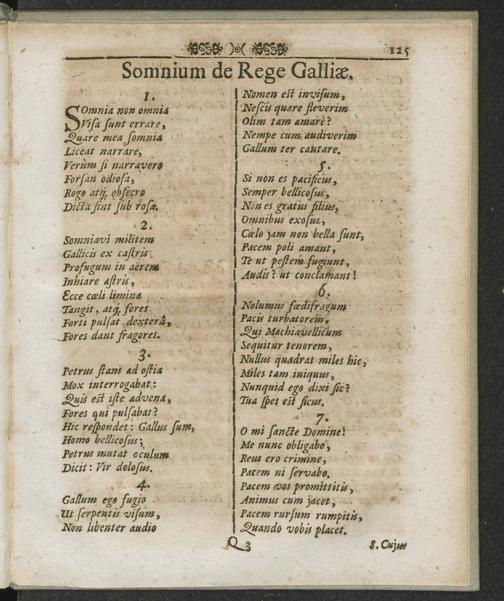 125
Somnium de Rege Galliæ.
1.
SOmnia non omnia
Visa sunt errare,
Quare mea somnia
Liceat narrare,
Verùm si narravero
Forsan odiosa,
Rogo atq; obsecro
Dicta sint sub rosa.
2.
Somniavi militem
Gallicis ex castris
Profugum in aërem
Inhiare astris,
Ecce cœli limina
Tangit, atq; fores
Forti pulsat dexterâ,
Fores dant fragores.
3.
Petrus stans ad ostia
Mox interrogabat:
Quis est iste advena,
Fores qui pulsabat?
Hic respondet: Gallus sum,
Homo bellicosus;
Petrus mutat oculum
Dicit: Vir dolosus.
4.
Gallum ego fugio
Ut serpentis visum,
Non libenter audio
Nomen est invisum,
Nescis quare fleverim
Olim tam amarè?
Nempe cum audiverim
Gallum ter cantare.
5.
Si non es pacificus,
Semper bellicosus,
Non es gratus filius,
Omnibus exosus,
Cœlo jam non bella sunt,
Pacem poli amant,
Te ut pestem fugiunt,
Audis? ut conclamant!
6.
Nolumus fœdifragum
Pacis turbatorem,
Qui Machiavellicum
Sequitur tenorem,
Nullus quadrat miles hic,
Miles tam iniquus,
Nunquid ego dixi sic?
Tua spes est ficus.
7.
O mi sancte Domine!
Me nunc obligabo,
Reus ero crimine,
Pacem ni servabo.
Pacem vos promittitis,
Animus cum jacet,
Pacem rursum rumpitis,
Quando vobis placet.
Q 3
8. Cujus